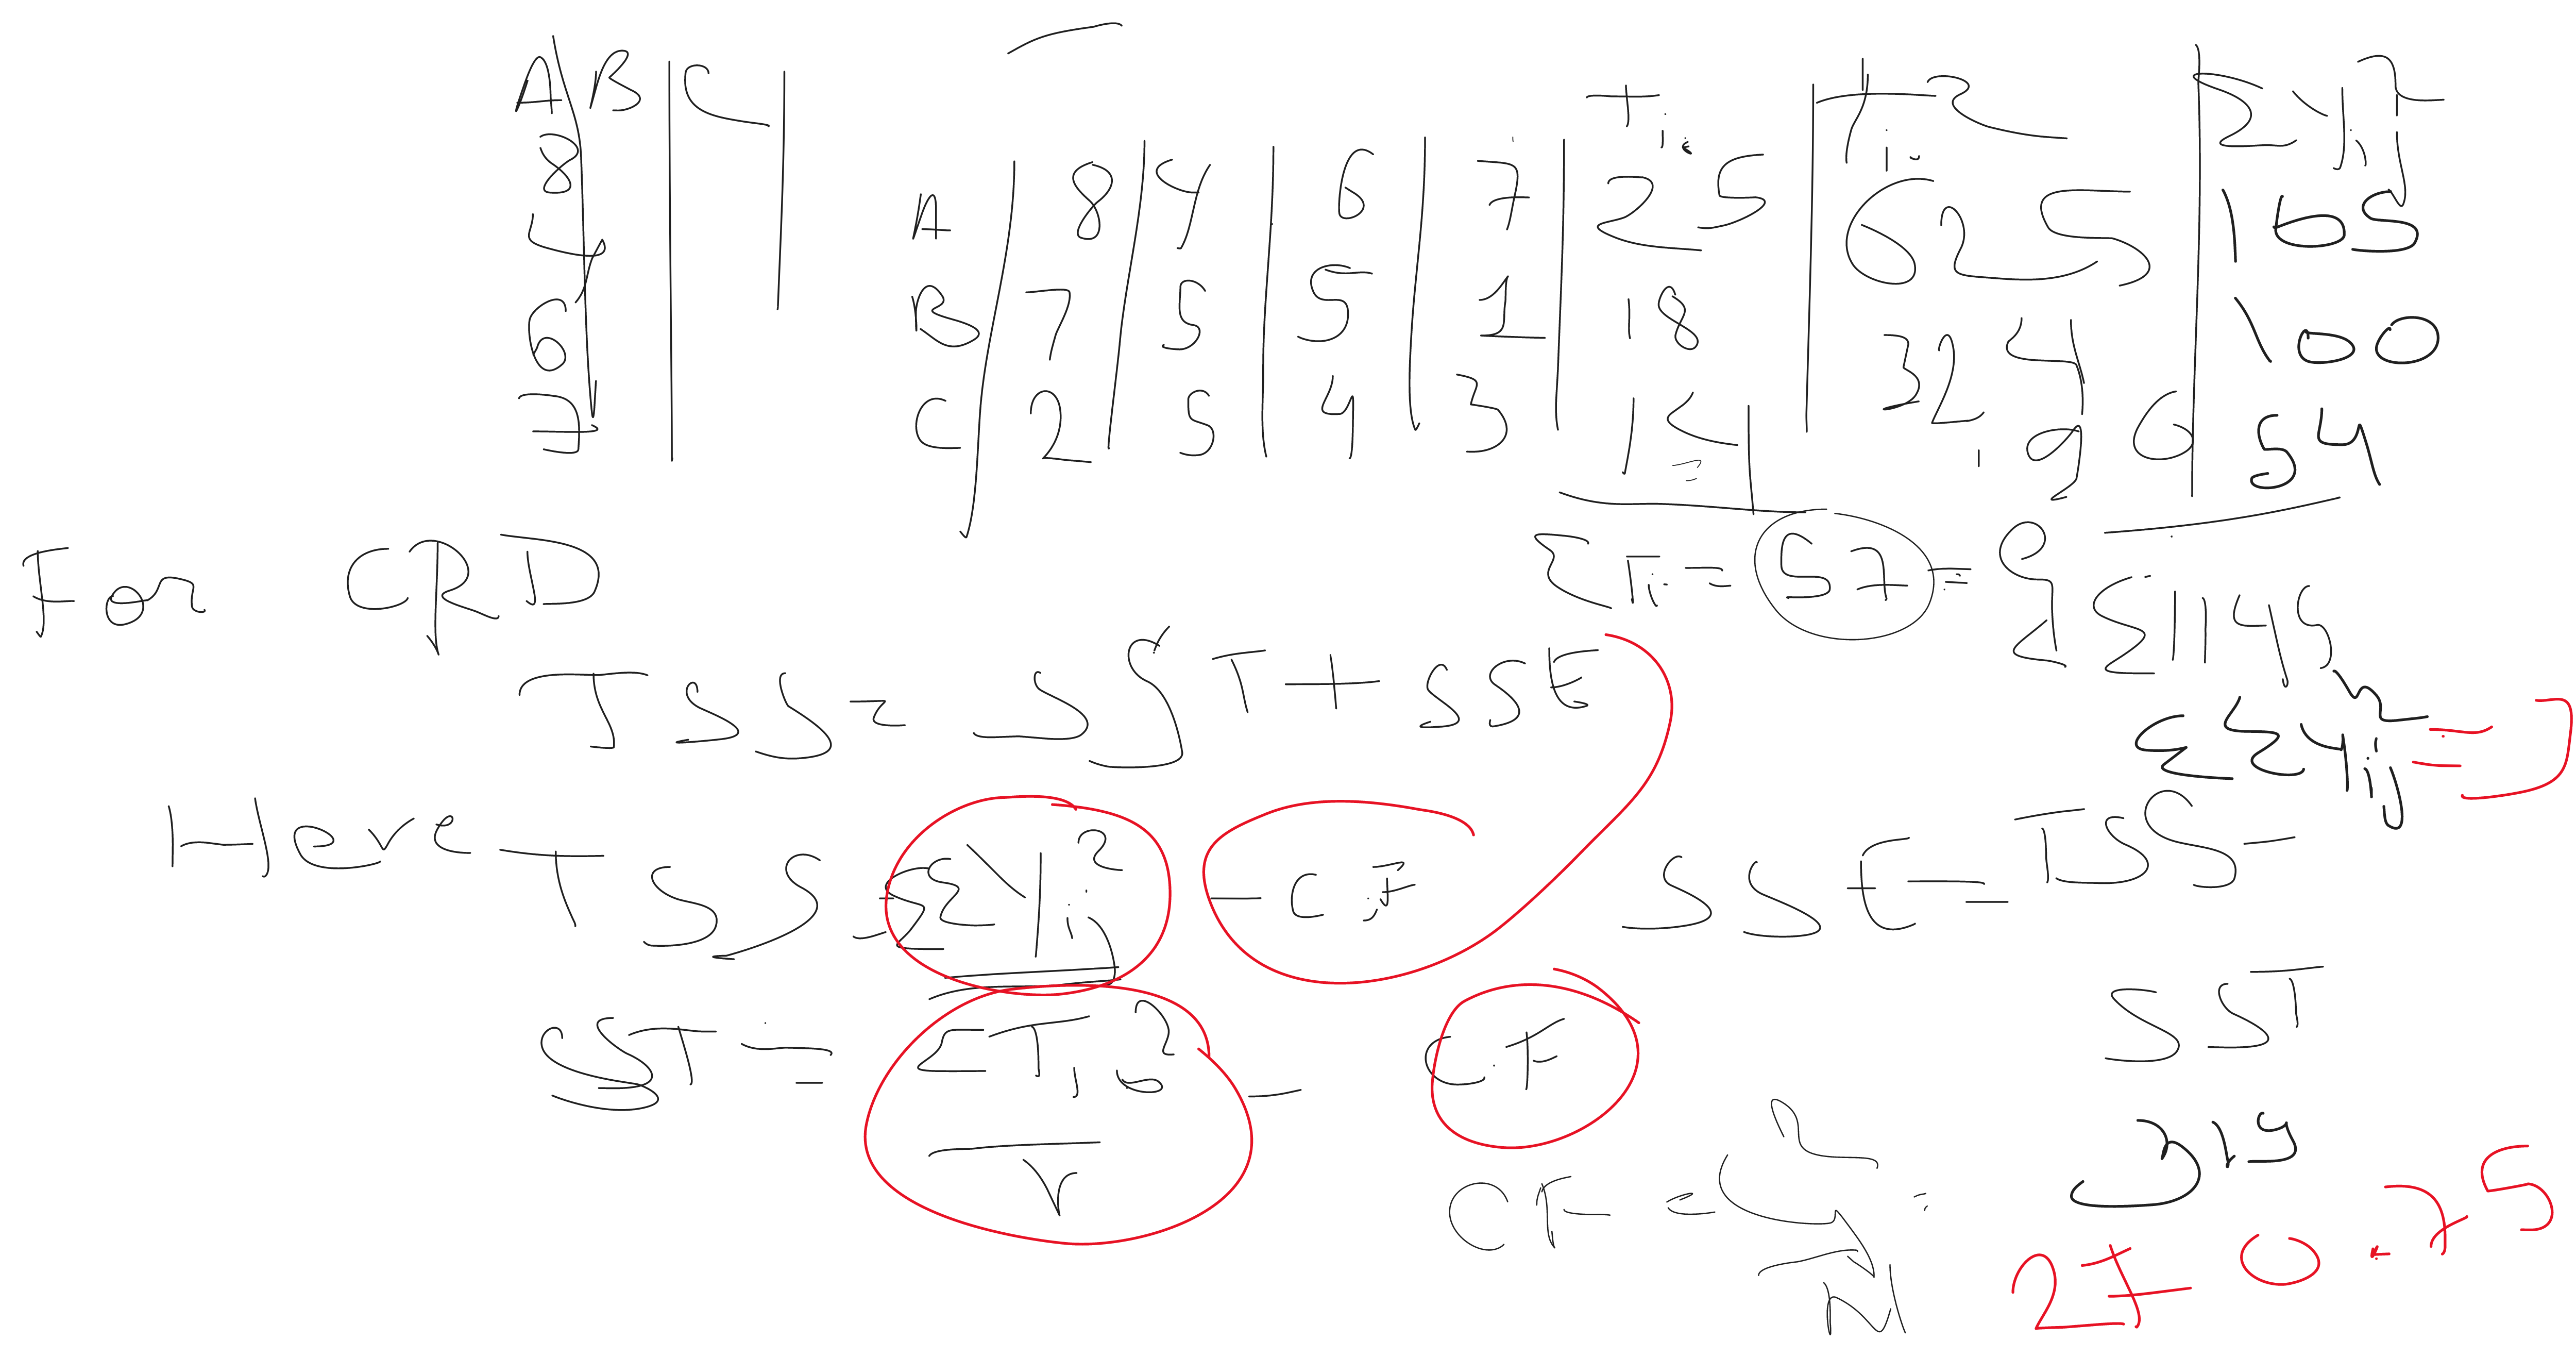 A | B | C |
8
4
6
7
Ti. | Ti.² | Σyij²
A | 8 | 4 | 6 | 7 | 25 | 625 | 165
B | 7 | 5 | 5 | 1 | 18 | 324 | 100
C | 2 | 5 | 4 | 3 | 14 | 196 | 54
ΣTi. = 57 = G
Σ 1145
For CRD
TSS = SST + SSE
ΣΣyij² =
Here TSS = ΣΣyij² - C.F
SSE = TSS -
SST
SST = ΣTi.² / r - C.F
CF = G² / N =
319
270.75